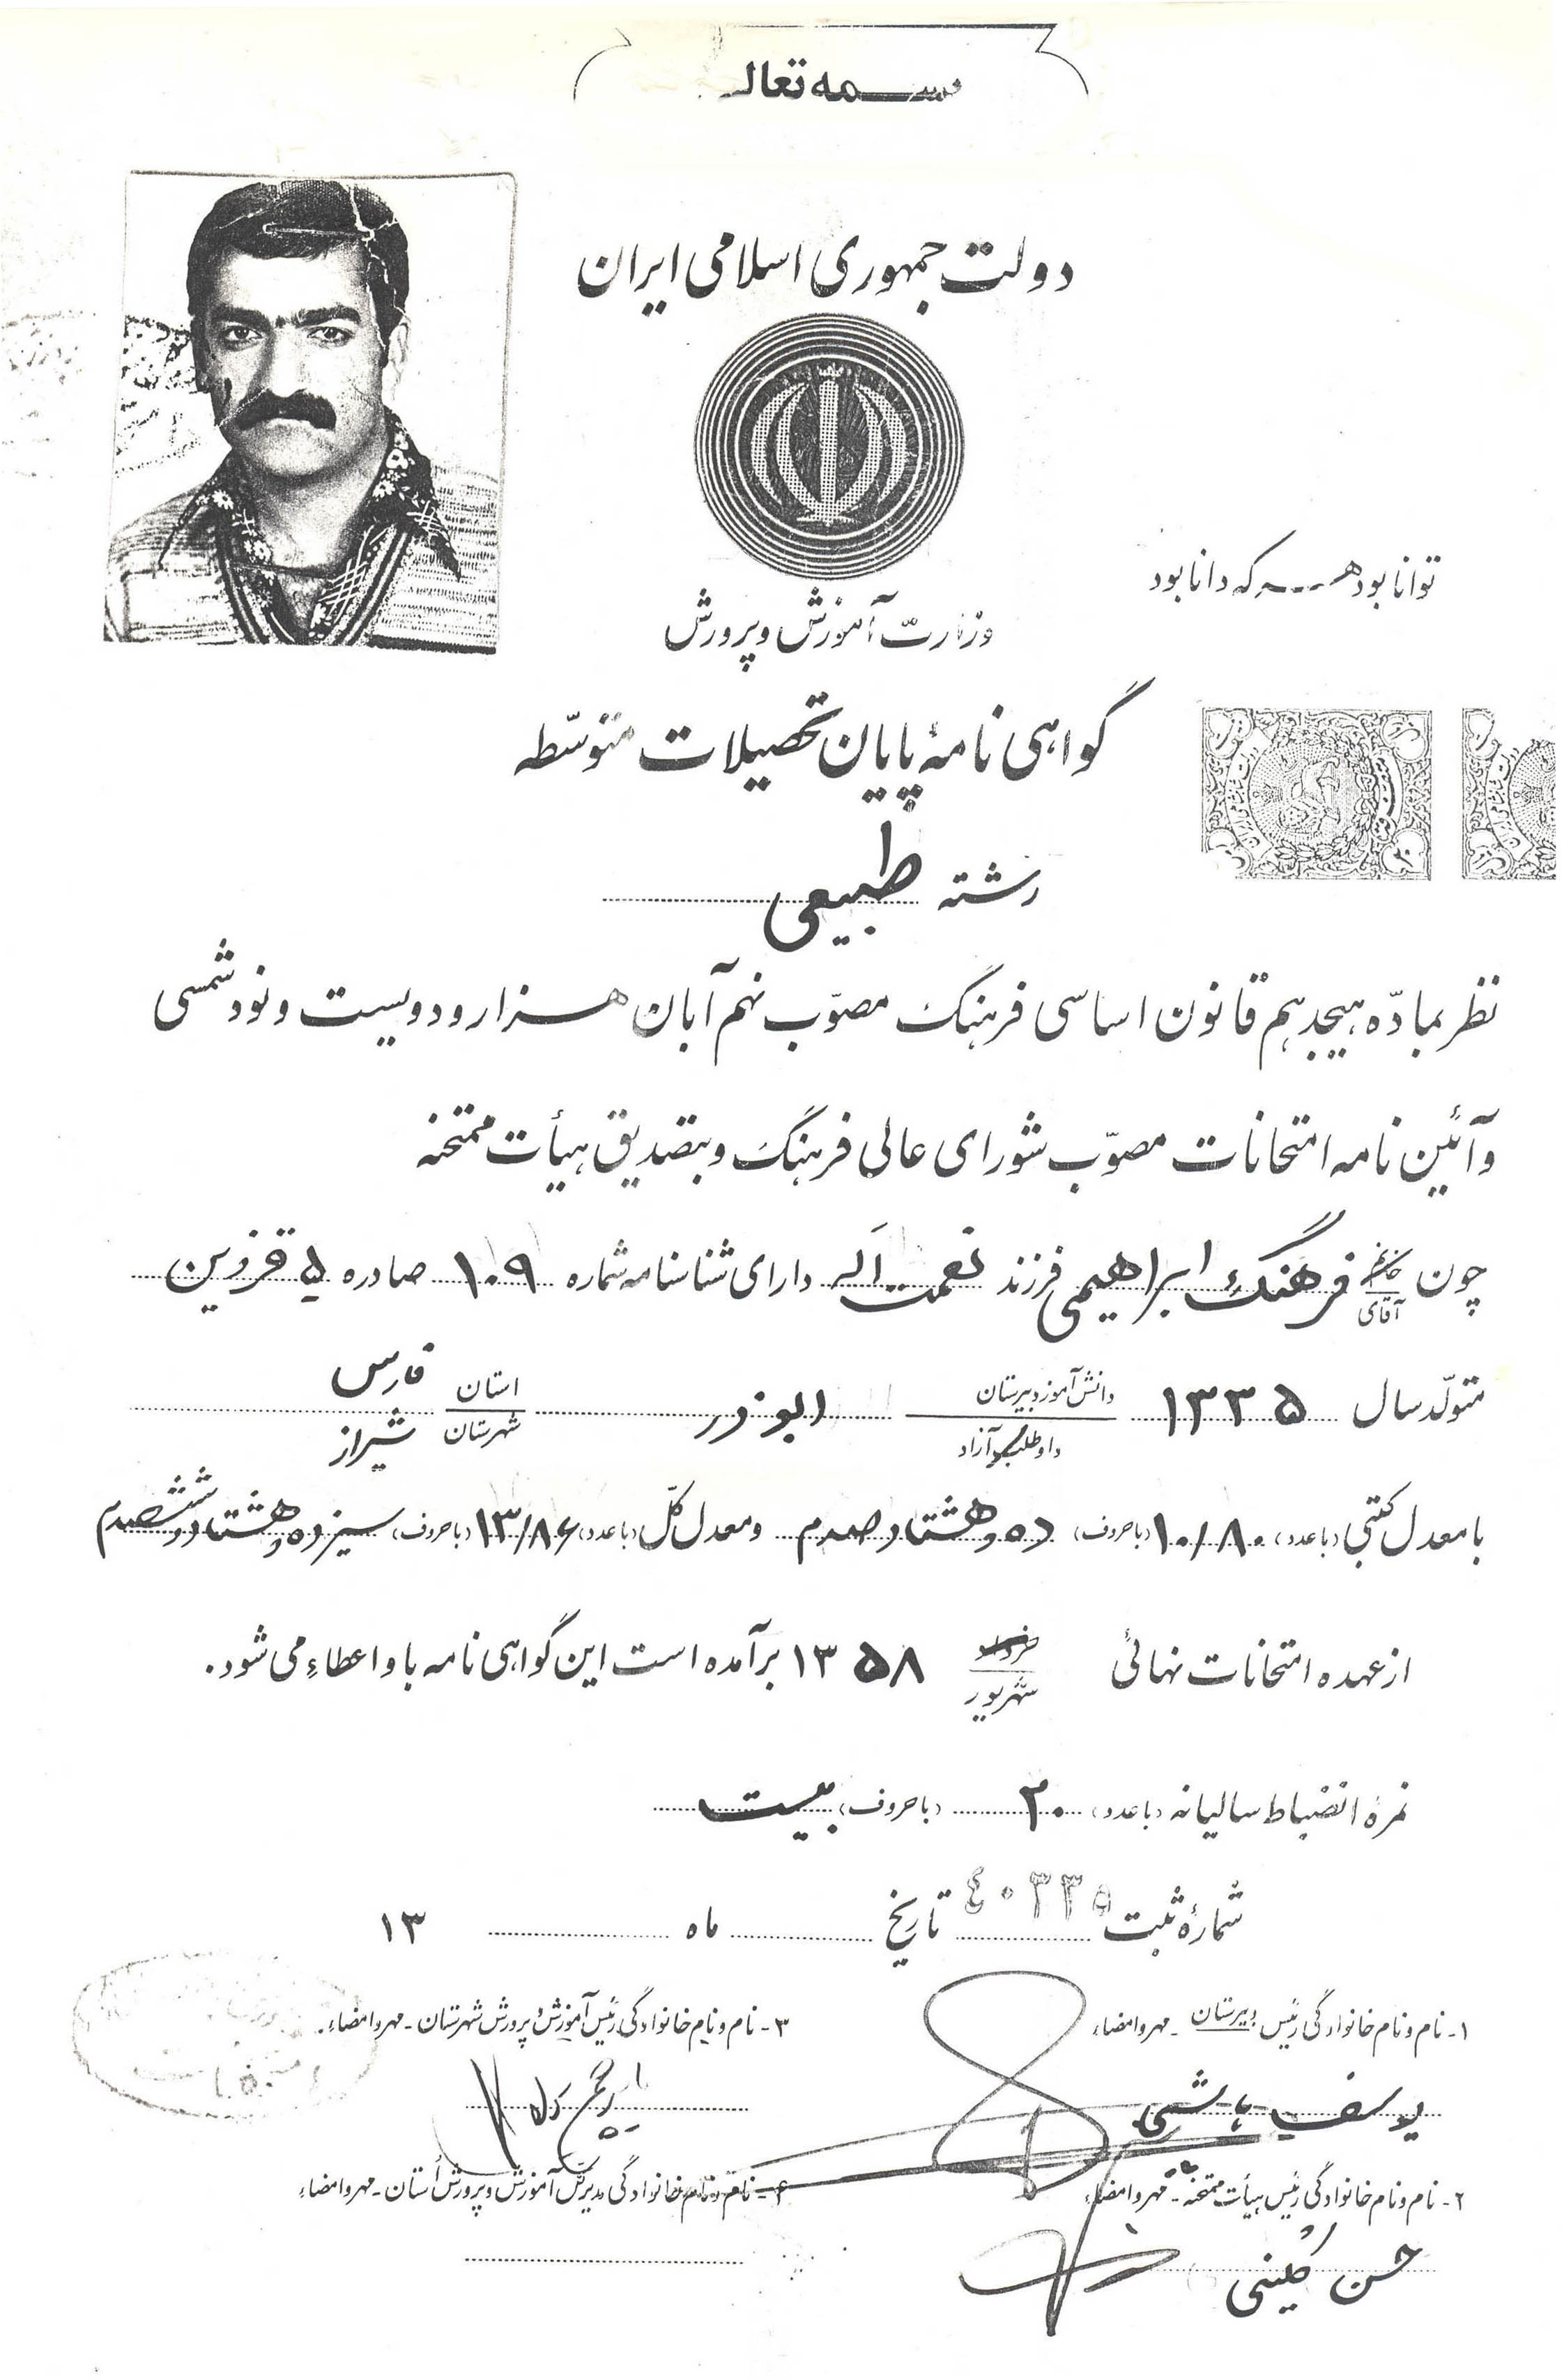 بسمه تعالی
دولت جمهوری اسلامی ایران
توانا بود هر که دانا بود
وزارت آموزش و پرورش
گواهی نامهٔ پایان تحصیلات متوسّطه
رشته طبیعی
نظر بمادّه هیجدهم قانون اساسی فرهنگ مصوّب نهم آبان هزار و دویست و نود شمسی
و آئین نامه امتحانات مصوّب شورای عالی فرهنگ و بتصدیق هیأت ممتحنه
چون خانم آقای فرهنگ ابراهیمی فرزند نعمت اله دارای شناسنامه شماره ۱۰۹ صادره ۵ قزوین
متولّد سال ۱۳۳۵ دانش آموز دبیرستان ابوذر استان فارس
داوطلب آزاد شهرستان شیراز
با معدل کتبی (با عدد) ۱۰/۸۰ (با حروف) ده و هشتاد صدم و معدل کلّ (با عدد) ۱۳/۸۶ (با حروف) سیزده و هشتاد و شش صدم
از عهده امتحانات نهائی خرداد شهریور ۱۳۵۸ برآمده است این گواهی نامه باو اعطاء می شود.
نمرهٔ انضباط سالیانه (با عدد) ۲۰ (با حروف) بیست
شمارهٔ ثبت ٤٠٣٣٥ تاریخ ماه ۱۳
۱- نام و نام خانوادگی رئیس دبیرستان - مهر و امضاء
۳- نام و نام خانوادگی رئیس آموزش و پرورش شهرستان - مهر و امضاء.
یوسف هاشمی
۲- نام و نام خانوادگی رئیس هیأت ممتحنه - مهر و امضاء
۴- نام و نام خانوادگی مدیرکل آموزش و پرورش اُستان - مهر و امضاء
حسن